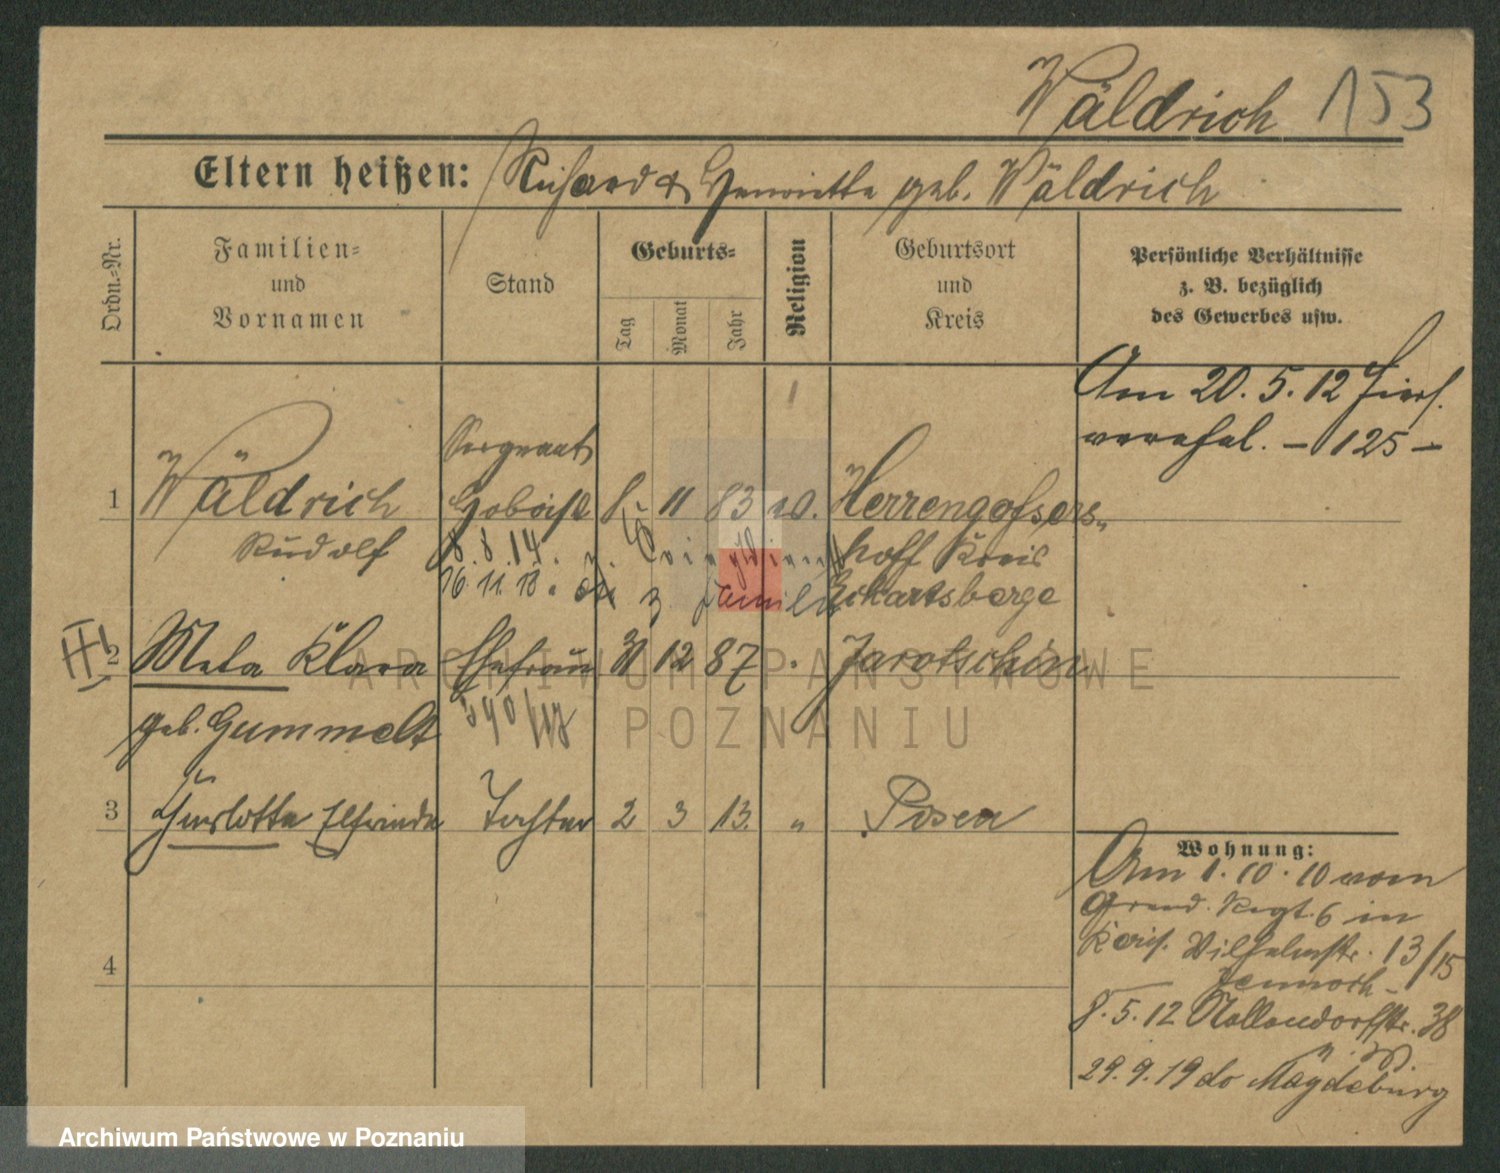 Wäldrich 153
Eltern heißen: Richard & Henriette geb. Wäldrich
Ordn.-Nr.
Familien-
und
Vornamen
Stand
Geburts-
Tag
Monat
Jahr
Religion
Geburtsort
und
Kreis
Persönliche Verhältnisse
z. B. bezüglich
des Gewerbes usw.
Am 20. 5. 12 hiers.
verehel. – 125 –
1 Wäldrich
Rudolf
Sergeant
Hoboist
8 11 83
Herrengosers-
hoff Kreis
Eckartsberge
8. 8. 14.
16. 11. 18. z. Familie
III
2 Meta Klara Ehefrau 31 12 87 Jarotschin
geb. Gummelt
3 Charlotte Elfriede Tochter 2 3 13. " Posen
4
Wohnung:
Am 1. 10. 10 vom
Gren. Regt. 6 in
Wilhelmstr. 13/15
8. 5. 12 Nollendorfstr. 38
29. 9. 19 do Magdeburg
ARCHIWUM PAŃSTWOWE
W POZNANIU
Archiwum Państwowe w Poznaniu